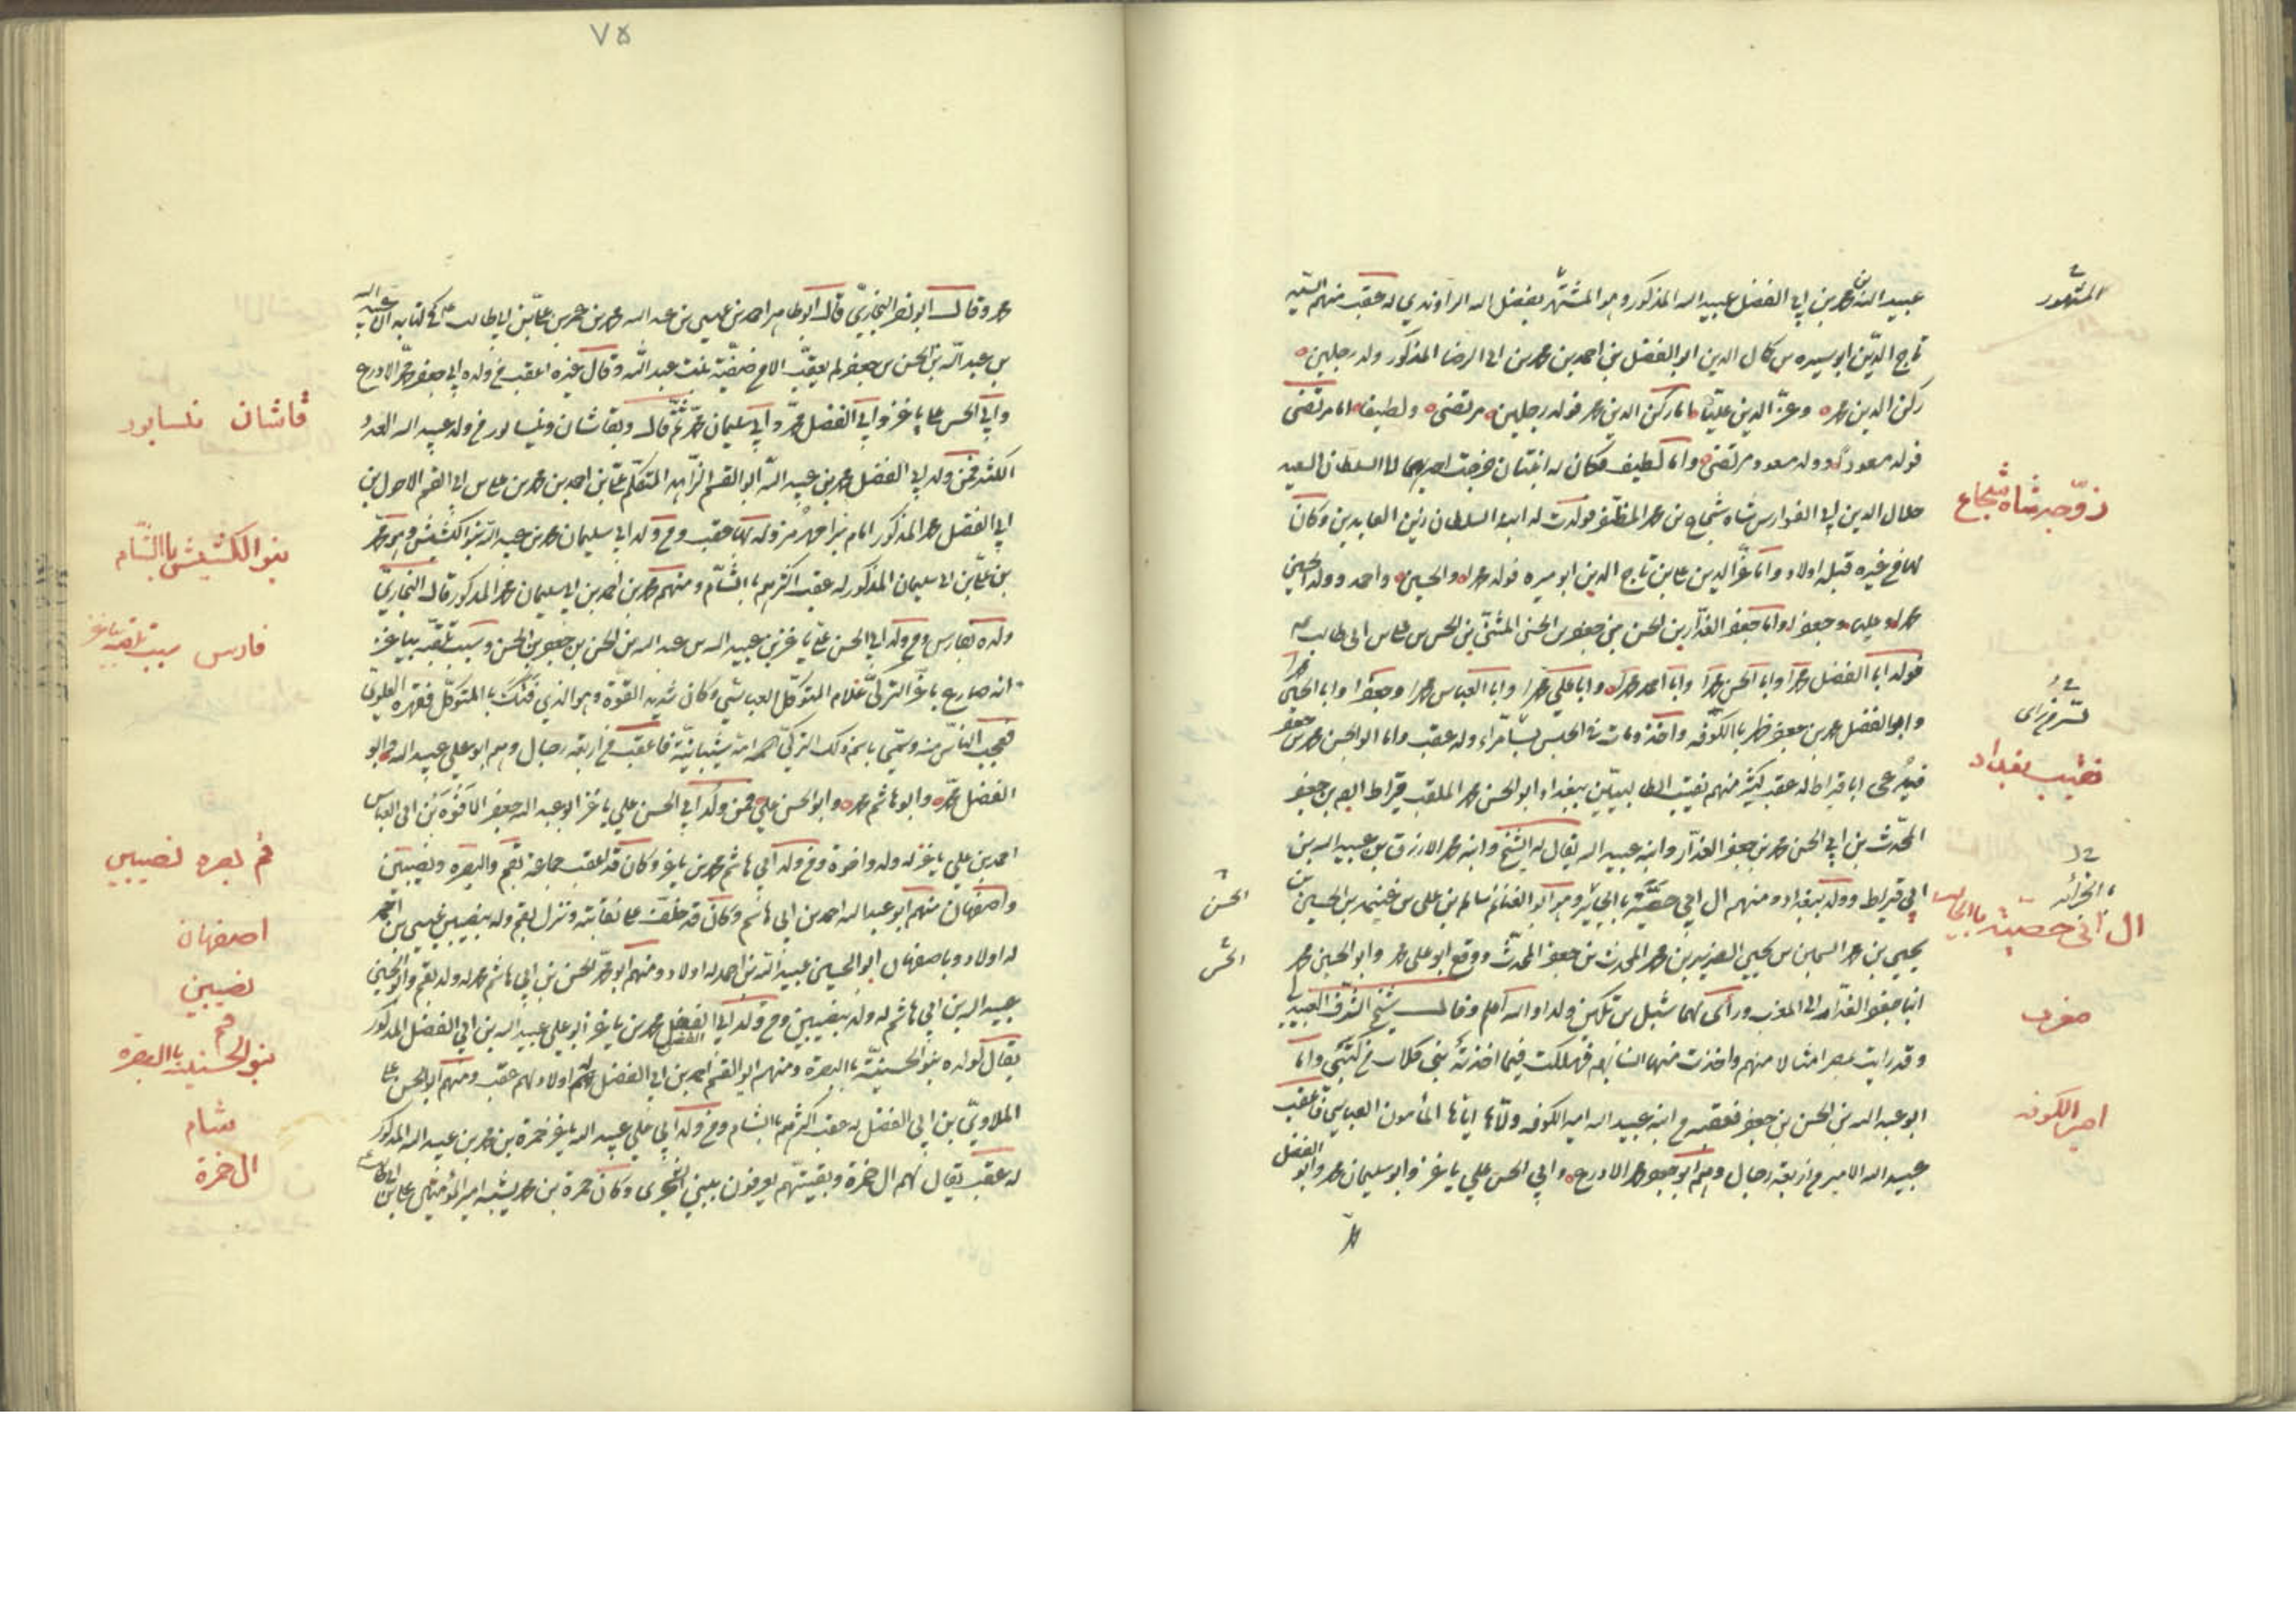 عبيد الله بن محمد بن ابي الفضل عبيد الله المذكور وهو المشتهر بفضل الله الراوندي له عقب منهم السيد
تاج الدين ابو ميره بن كمال الدين ابو الفضل بن احمد بن محمد بن ابي الرضا المذكور ولد رجلين
ركن الدين محمد وعز الدين عليا اما ركن الدين محمد فولد رجلين مرتضى ولطيف اما مرتضى
فولد مسعودا وولد مسعود مرتضى واما لطيف فكان له ابنتان خرجت احديهما الى السلطان السعيد
جلال الدين ابي الفوارس شاه شجاع بن محمد المظفر فولدت له ابنه السلطان زين العابدين وكان
لها من غيره قبله اولاد واما عز الدين علي بن تاج الدين ابو ميره فولد محمدا والحسين واحمد وولد الحسين
محمدا وعليا وجعفرا واما جعفر الغدار بن الحسن بن جعفر بن الحسن المثنى بن الحسن بن علي بن ابي طالب
فولد ابا الفضل محمدا وابا الحسن محمدا وابا احمد محمدا وابا علي محمدا وابا العباس محمدا وجعفرا وابا الحسين محمدا
وابو الفضل محمد بن جعفر ظهر بالكوفه واخذ ومات في الحبس بسامراء وله عقب واما ابو الحسن محمد بن جعفر
فيدعى ابا قيراط له عقب كثير منهم نقيب الطالبيين ببغداد ابو الحسن محمد الملقب قيراط ابن جعفر
المحدث بن ابي الحسن محمد بن جعفر الغدار وابنه عبيد الله يقال له الشيخ وابنه محمد الازرق بن عبيد الله بن
ابي قيراط وولد ببغداد ومنهم ال ابي حصية بالحائر وهو ابو الغنائم سالم بن علي بن غنيمه بن الحسين بن
يحيى بن محمد السمين بن يحيى الضرير بن محمد المحدث بن جعفر المحدث ووقع ابو علي محمد وابو الحسين محمد
ابنا جعفر الغدار الى المغرب وراى لهما شبل بن تكين ولدا والله اعلم وقال شيخ الشرف العبيدلي
وقد رايت بمصر امثالا منهم واخذت منهما انسابهم فهلكت فيما اخذته بني كلاب من كتبي واما
ابو عبد الله بن الحسن بن جعفر فعقبه من ابنه عبيد الله امير الكوفه ولاها اياها المامون العباسي فاعقب
عبيد الله الامير من اربعة رجال وهم ابو جعفر محمد الادرع وابي الحسن علي باغر وابو سليمان محمد وابو الفضل
المشهور
زوجه شاه شجاع
سر من راى
نقيب بغداد
الحائر
ال ابي حصية بالحائر
مغرب
امير الكوفه
الحسن
الحسن
٧٥
محمد وقال ابو نصر البخاري قال ابو طاهر احمد بن عيسى بن عبد الله بن محمد بن عمر بن علي بن ابي طالب في كتابه ان عبيد الله
بن عبد الله بن الحسن بن جعفر لم يعقب الا من صفية بنت عبد الله وقال غيره اعقب من ولده ابي جعفر محمد الادرع
وابي الحسن علي باغر وابي الفضل محمد وابي سليمان محمد ثم قال وبقاشان ونيسابور من ولد عبيد الله العدد
الكثير فمن ولد ابي الفضل محمد بن عبيد الله ابو القسم الزاهد المتكلم علي بن احمد بن محمد بن علي بن ابي القسم الاحول بن
ابي الفضل محمد المذكور ومن ولد ابي سليمان محمد بن عبيد الله بنو الكشيش وهو محمد
بن علي بن ابي سليمان المذكور له عقب اكثرهم بالشام ومنهم محمد بن احمد بن ابي سليمان محمد المذكور قال البخاري
ولده بفارس ومن ولد ابي الحسن علي باغر بن عبيد الله بن عبد الله بن الحسن بن جعفر بن الحسن وسبب تلقبه بباغر
انه صارع باغر التركي غلام المتوكل العباسي وكان شديد القوة وهو الذي فتك بالمتوكل فقهره العلوي
فعجب الناس منه وسمي باسم ذلك التركي فاعقب من اربعة رجال وهم ابو علي عبيد الله وابو
الفضل محمد وابو هاشم محمد وابو الحسن علي فمن ولد ابي الحسن علي باغر ابو عبد الله جعفر بن ابي العباس
احمد بن علي باغر له ولد واخوة ومن ولد ابي هاشم محمد بن باغر وكان قد اعقب جماعة بقم والبصره ونصيبين
واصفهان منهم ابو عبد الله احمد بن ابي هاشم وكان قد خلف على نقابته ونزل بقم وله بنصيبين عيسى بن احمد
له اولاد وباصفهان ابو الحسين عبيد الله بن احمد له اولاد ومنهم ابو محمد الحسن بن ابي هاشم محمد له ولد بقم وابو الحسين
عبيد الله بن ابي هاشم له ولد بنصيبين ومن ولد ابي الفضل محمد بن باغر ابو علي عبيد الله بن ابي الفضل المذكور
يقال لولده بنو الحسينية بالبصرة ومنهم ابو القسم احمد بن ابي الفضل له اولاد لهم عقب ومنهم ابو الحسن علي
الملاوي بن ابي الفضل له عقب اكثرهم بالشام ومن ولد ابي علي عبيد الله باغر حمزة بن محمد بن عبيد الله المذكور
له عقب يقال لهم ال حمزة وبقيتهم يعرفون ببني الشجري وكان حمزة بن محمد يشبه امير المؤمنين علي بن ابي طالب
قاشان نيسابور
بنو الكشيش بالشام
فارس سبب تلقبه باغر
قم بصره نصيبين
اصفهان
نصيبين
قم
بنو الحسينية بالبصره
شام
ال حمزة